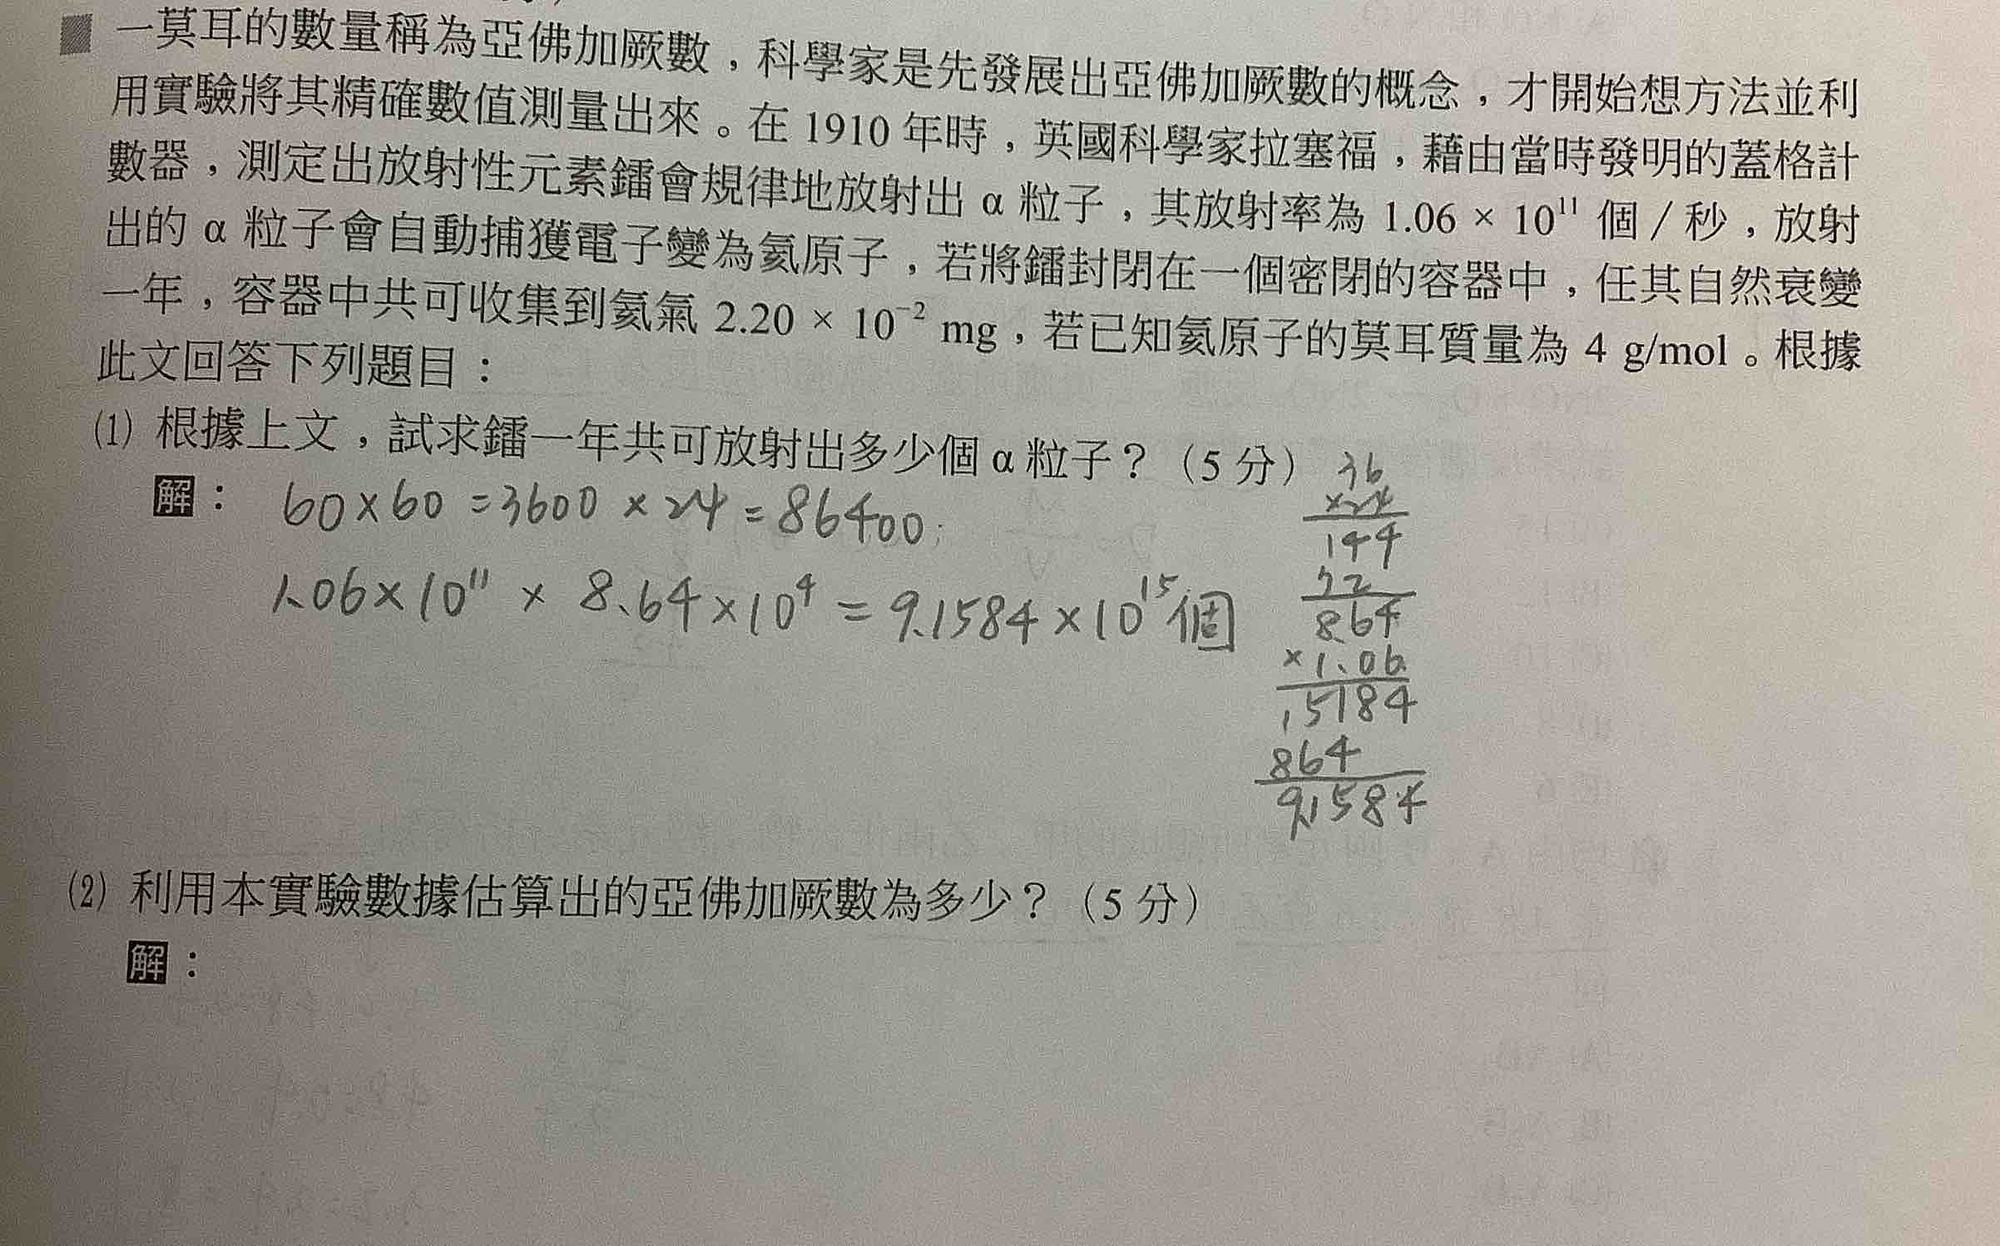 一莫耳的數量稱為亞佛加厥數，科學家是先發展出亞佛加厥數的概念，才開始想方法並利
用實驗將其精確數值測量出來。在 1910 年時，英國科學家拉塞福，藉由當時發明的蓋格計
數器，測定出放射性元素鐳會規律地放射出 α 粒子，其放射率為 1.06 × 10¹¹ 個／秒，放射
出的 α 粒子會自動捕獲電子變為氦原子，若將鐳封閉在一個密閉的容器中，任其自然衰變
一年，容器中共可收集到氦氣 2.20 × 10⁻² mg，若已知氦原子的莫耳質量為 4 g/mol。根據
此文回答下列題目：
(1) 根據上文，試求鐳一年共可放射出多少個 α 粒子？（5 分）
解：
60×60 = 3600 × 24 = 86400
1.06×10¹¹ × 8.64×10⁴ = 9.1584×10¹⁵個
36
×24
144
72
864
×1.06
5184
864
9.1584
(2) 利用本實驗數據估算出的亞佛加厥數為多少？（5 分）
解：